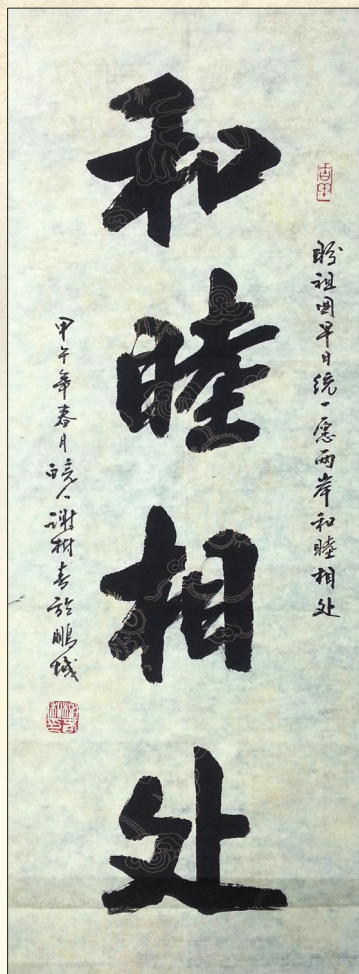 盼祖国早日统一愿两岸和睦相处
和睦相处
甲午年春月谢树於鹏城